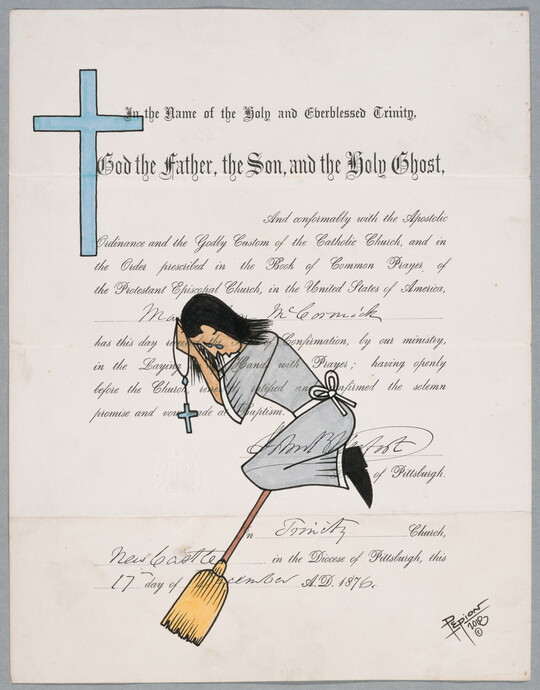 In the Name of the Holy and Everblessed Trinity,
God the Father, the Son, and the Holy Ghost,
And conformably with the Apostolic
Ordinance and the Godly Custom of the Catholic Church, and in
the Order prescribed in the Book of Common Prayer of
the Protestant Episcopal Church, in the United States of America,
McCormick
has this day Confirmation, by our ministry,
in the Laying Hand with Prayer; having openly
before the Church, ratified and confirmed the solemn
promise and vow made at Baptism.
of Pittsburgh.
in Trinity Church,
New Castle in the Diocese of Pittsburgh, this
17 day of December A.D. 1876.
PEPION
2018
©